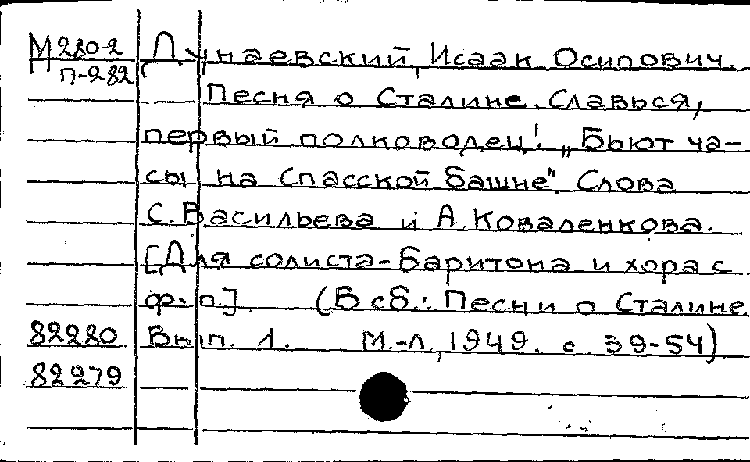 М280-2 Дунаевский, Исаак Осипович.
П-282 Песня о Сталине. Славься,
первый полководец! „Бьют ча-
сы на Спасской башне". Слова
С. Васильева и А. Коваленкова.
[Для солиста-баритона и хора с
ф.-п.] (В сб.: Песни о Сталине.
82280 Вып. 1. М.-Л., 1949. с 39-54)
82279